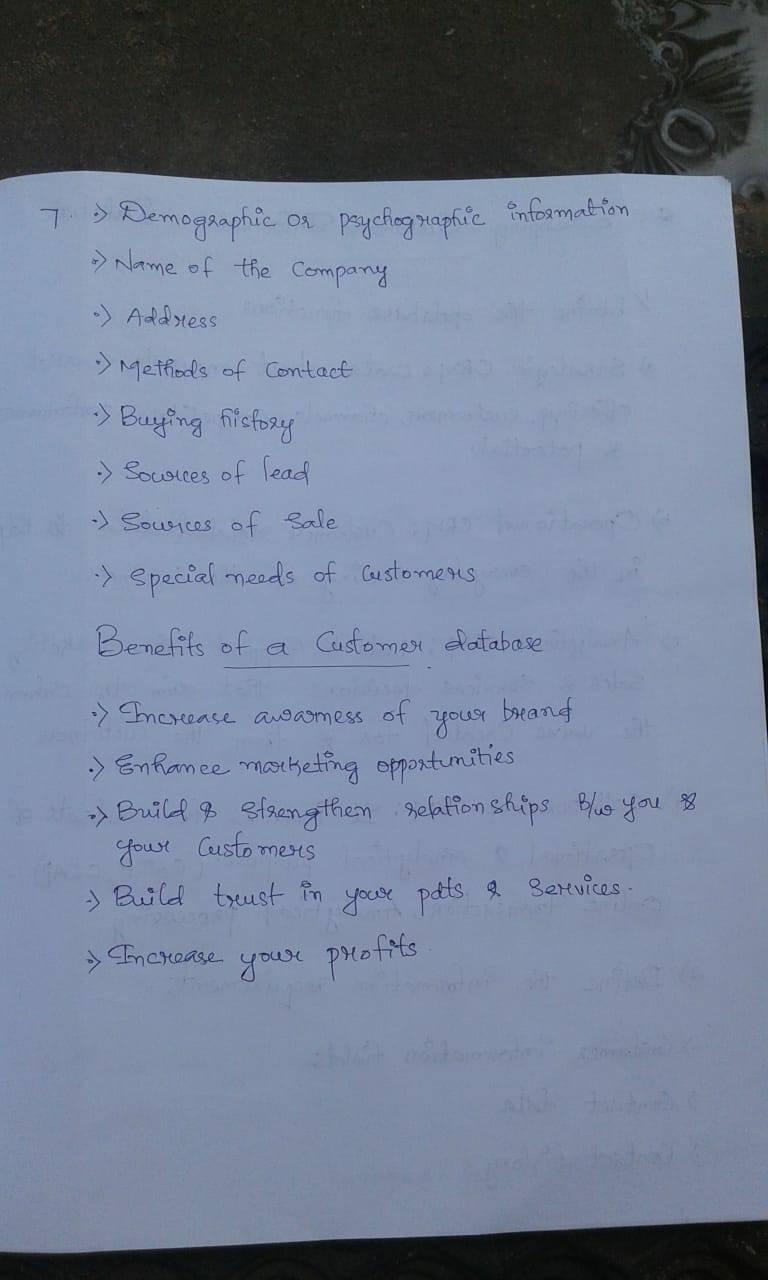 7. ·> Demographic or psychographic information
·> Name of the Company
·> Address
·> Methods of Contact
·> Buying history
·> Sources of lead
·> Sources of Sale
·> Special needs of Customers
Benefits of a Customer database
·> Increase awarness of your brand
·> Enhance marketing opportunities
·> Build & Strengthen relationships B/w you &
your Customers
·> Build trust in your pdts & Services.
·> Increase your profits